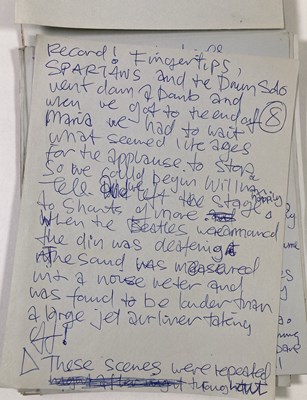 Record! Fingertips,
SPARTANS and the Drum Solo
went down a Bomb and
when we got to the end of 8
Maria we had to wait
what seemed like ages
for the applause to stop
So we could begin William
Tell. and left the stage happily
to Shouts of more
When the Beatles were announced
the din was deafening
The sound was measured
with a noise meter and
was found to be louder than
a large jet airliner taking
off!
These scenes were repeated
throughout